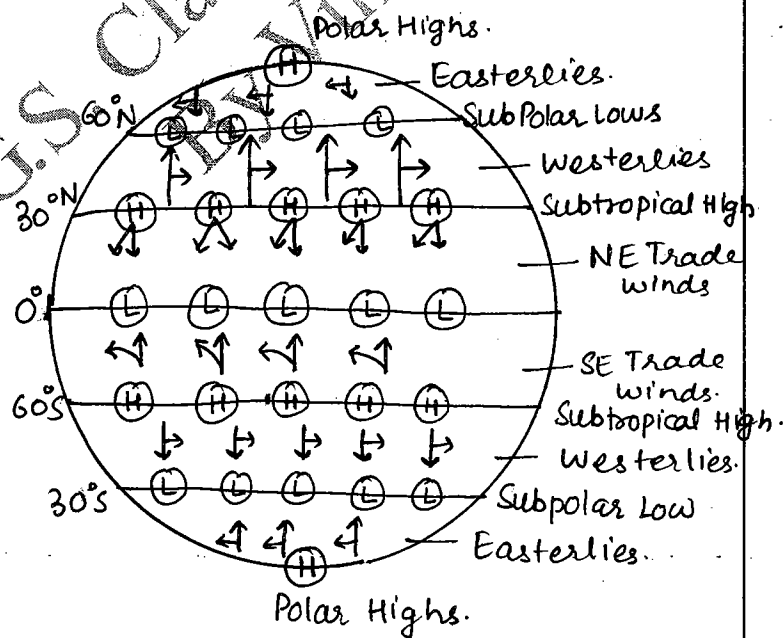 G.S. Cla
By Vi
Polar Highs.
H
Easterlies.
60°N
L L L L
SubPolar Lows
Westerlies
30°N
H H H H H
Subtropical High
NE Trade
winds
0°
L L L L L
SE Trade
winds.
60°S
H H H H H
Subtropical High.
Westerlies.
30°S
L L L L L
Subpolar Low
Easterlies.
H
Polar Highs.